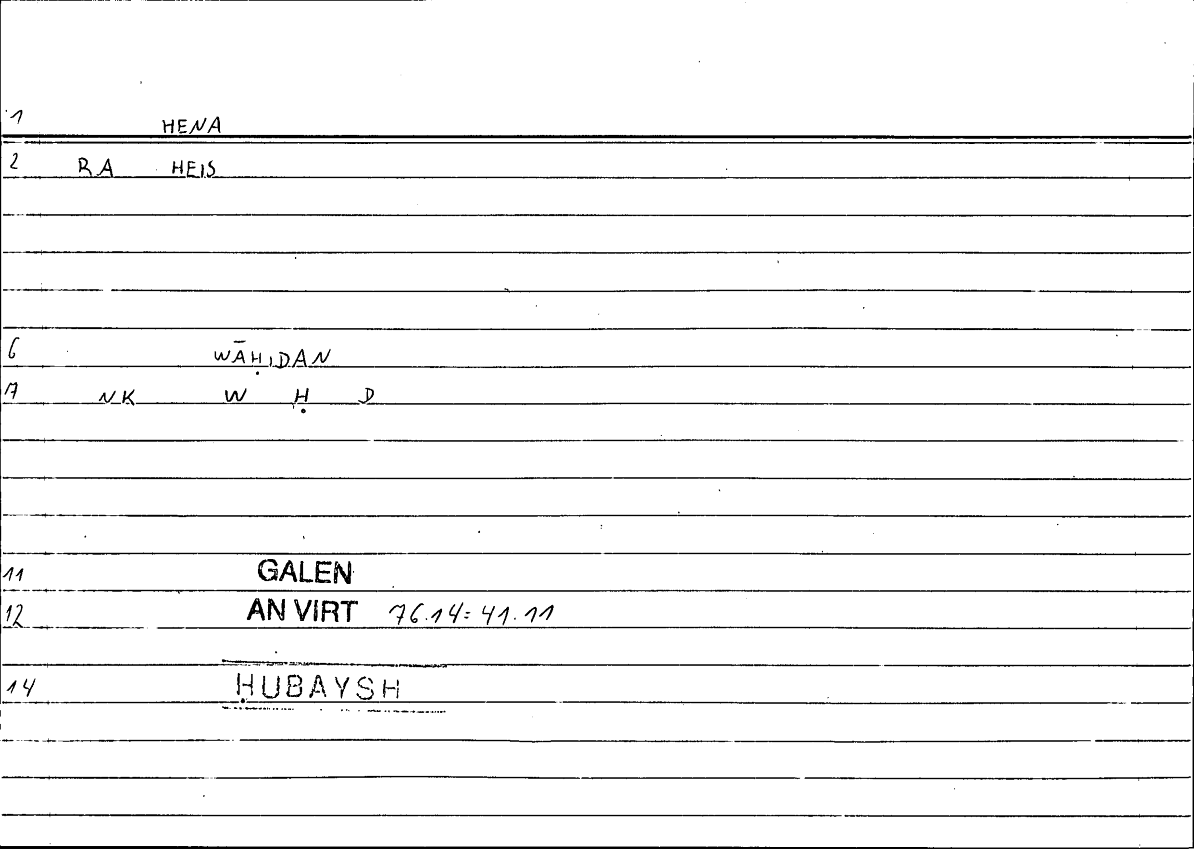 1 HENA
2 RA HEIS
6 WĀḤIDAN
7 NK W Ḥ D
11 GALEN
12 AN VIRT 76.14=41.11
14 ḤUBAYSH